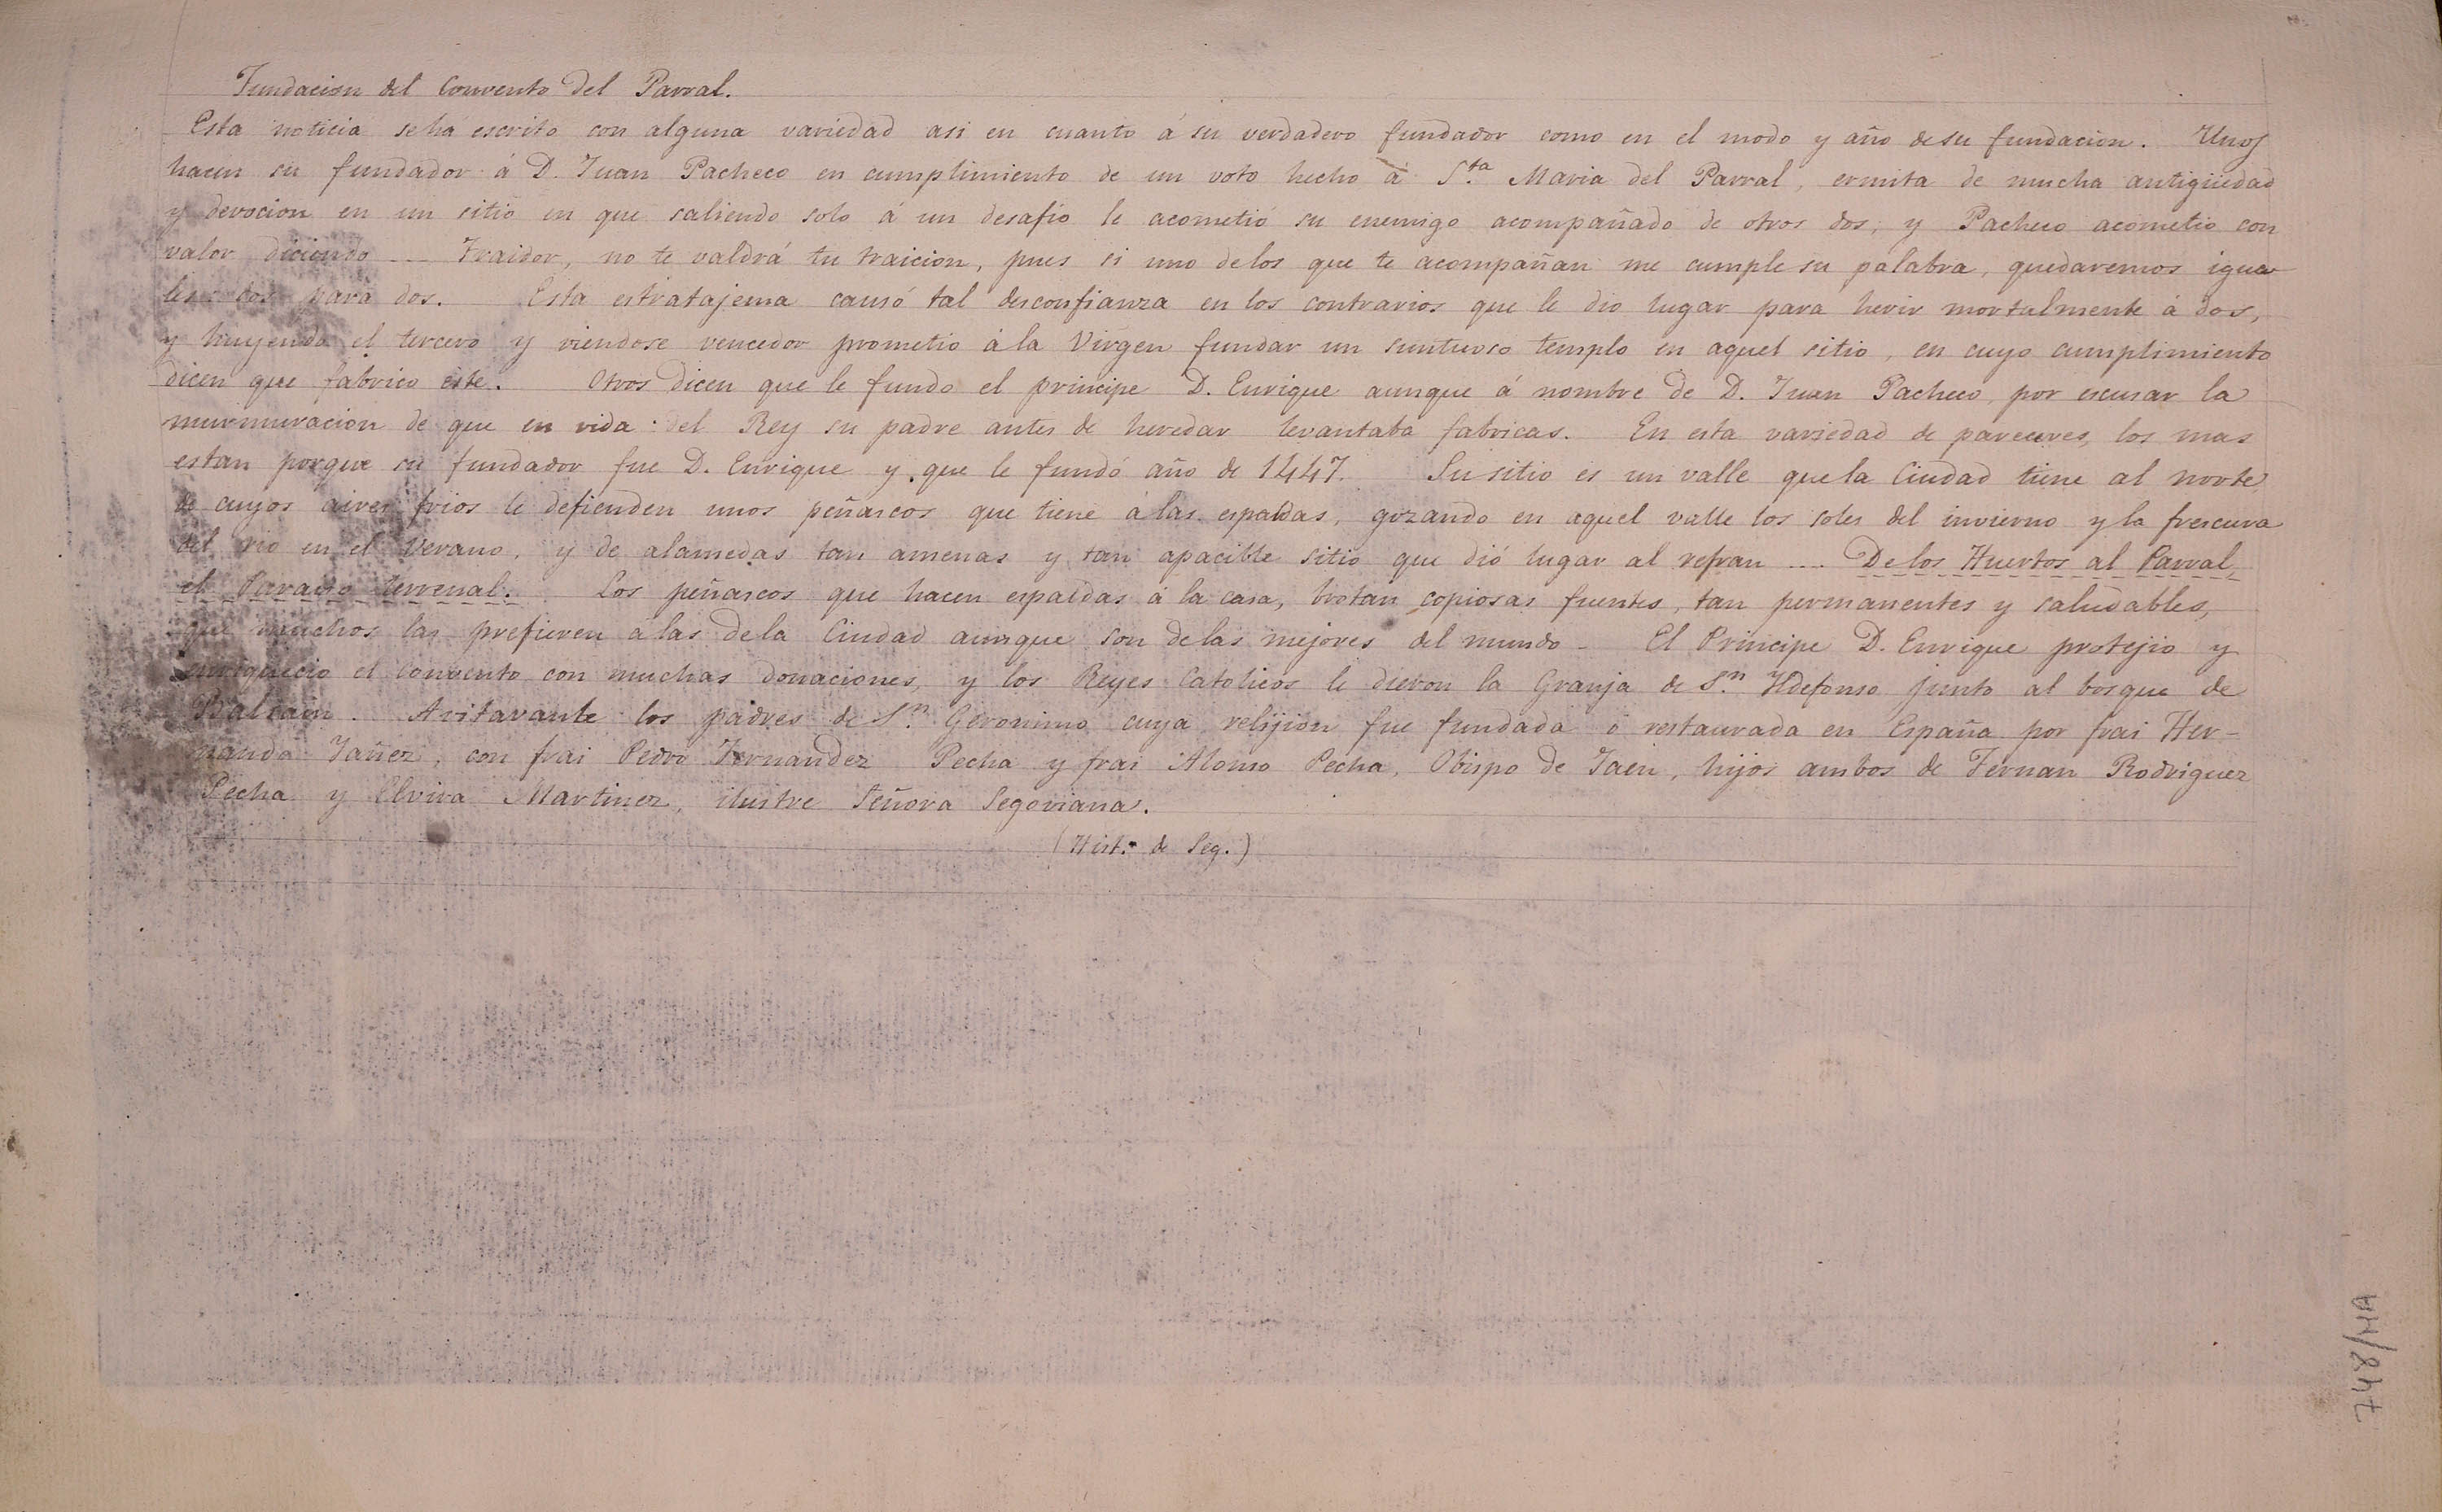 Fundacion del Convento del Parral.
Esta noticia se há escrito con alguna variedad asi en cuanto á su verdadero fundador como en el modo y año de su fundacion. Unos
hacen su fundador á D. Juan Pacheco en cumplimiento de un voto hecho à S.ta Maria del Parral, ermita de mucha antigüedad
y devocion en un sitio en que saliendo solo á un desafio le acometió su enemigo acompañado de otros dos, y Pacheco acometio con
valor diciendo ---- Traidor, no te valdrá tu traicion, pues si uno de los que te acompañan me cumple su palabra, quedaremos igua-
les dos para dos. Esta estratajema causó tal desconfianza en los contrarios que le dio lugar para herir mortalmente á dos,
y huyendo el tercero y viendose vencedor prometio á la Virgen fundar un suntuoso templo en aquel sitio, en cuyo cumplimiento
dicen que fabrico este. Otros dicen que le fundo el principe D. Enrique aunque á nombre de D. Juan Pacheco, por escusar la
murmuracion de que en vida del Rey su padre antes de heredar levantaba fabricas. En esta variedad de pareceres, los mas
estan porque su fundador fue D. Enrique y que le fundó año de 1447. Su sitio es un valle que la Ciudad tiene al norte
de cuyos aires frios le defienden unos peñascos que tiene á las espaldas, gozando en aquel valle los soles del invierno y la frescura
del rio en el Verano, y de alamedas tan amenas y tan apacible sitio que dió lugar al refran .... De los Huertos al Parral,
el Paraiso terrenal. Los peñascos que hacen espaldas á la casa, brotan copiosas fuentes, tan permanentes y saludables,
que muchos las prefieren a las de la Ciudad aunque son de las mejores del mundo - El Principe D. Enrique protejio y
enriquecio el convento con muchas donaciones, y los Reyes Catolicos le dieron la Granja de S.n Yldefonso junto al bosque de
Balsain. Avitavanle los padres de S.n Geronimo cuya relijion fue fundada ó restaurada en España por frai Her-
nando Yañez, con frai Pedro Fernandez Pecha y frai Alonso Pecha, Obispo de Jaen, hijos ambos de Fernan Rodriguez
Pecha y Elvira Martinez, ilustre Señora Segoviana.
(Hist.a de Seg.)
748/HA